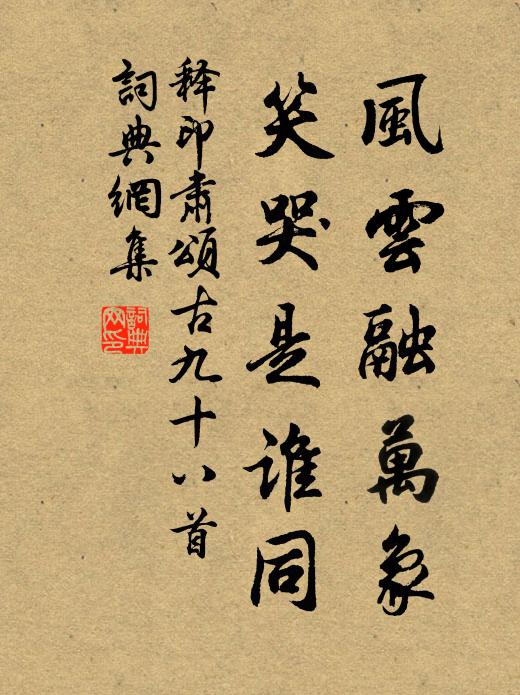 風雲融萬象
笑哭是誰同
釋印肅頌古九十八首
詞典網集
詞典网印